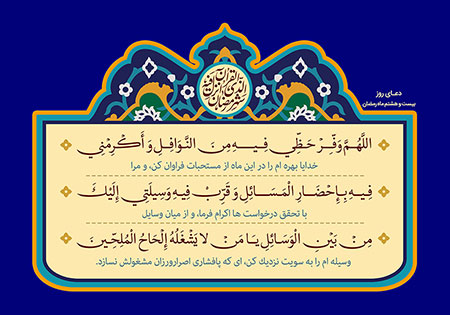 شهر رمضان الذی انزل فیه القرآن
دعـای روز
بیست و هشتم ماه رمضان
اللَّهُمَّ وَفِّرْ حَظِّي فِيهِ مِنَ النَّوَافِلِ وَ أَكْرِمْنِي
خدایا بهره ام را در این ماه از مستحبات فراوان کن، و مرا
فِيهِ بِإِحْضَارِ الْمَسَائِلِ وَ قَرِّبْ فِيهِ وَسِيلَتِي إِلَيْكَ
با تحقق درخواست ها اکرام فرما، و از میان وسایل
مِنْ بَيْنِ الْوَسَائِلِ يَا مَنْ لا يَشْغَلُهُ إِلْحَاحُ الْمُلِحِّينَ
وسیله ام را به سویت نزدیک کن، ای که پافشاری اصرارورزان مشغولش نسازد.